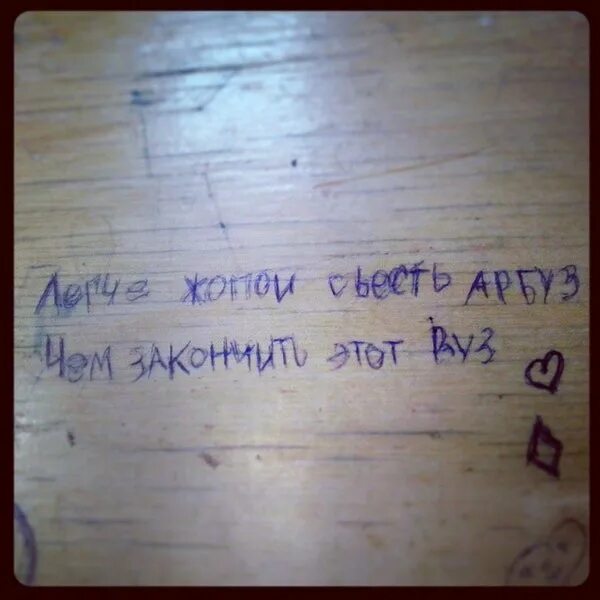 Легче жопой сьесть АРБУЗ
Чем закончить этот ВУЗ